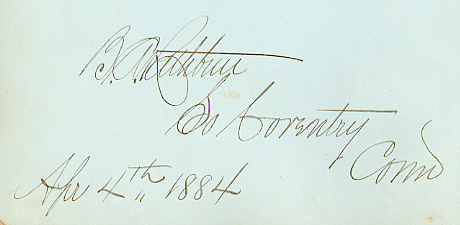 B. Rathbun
So Coventry
Conn
Apr 4th, 1884